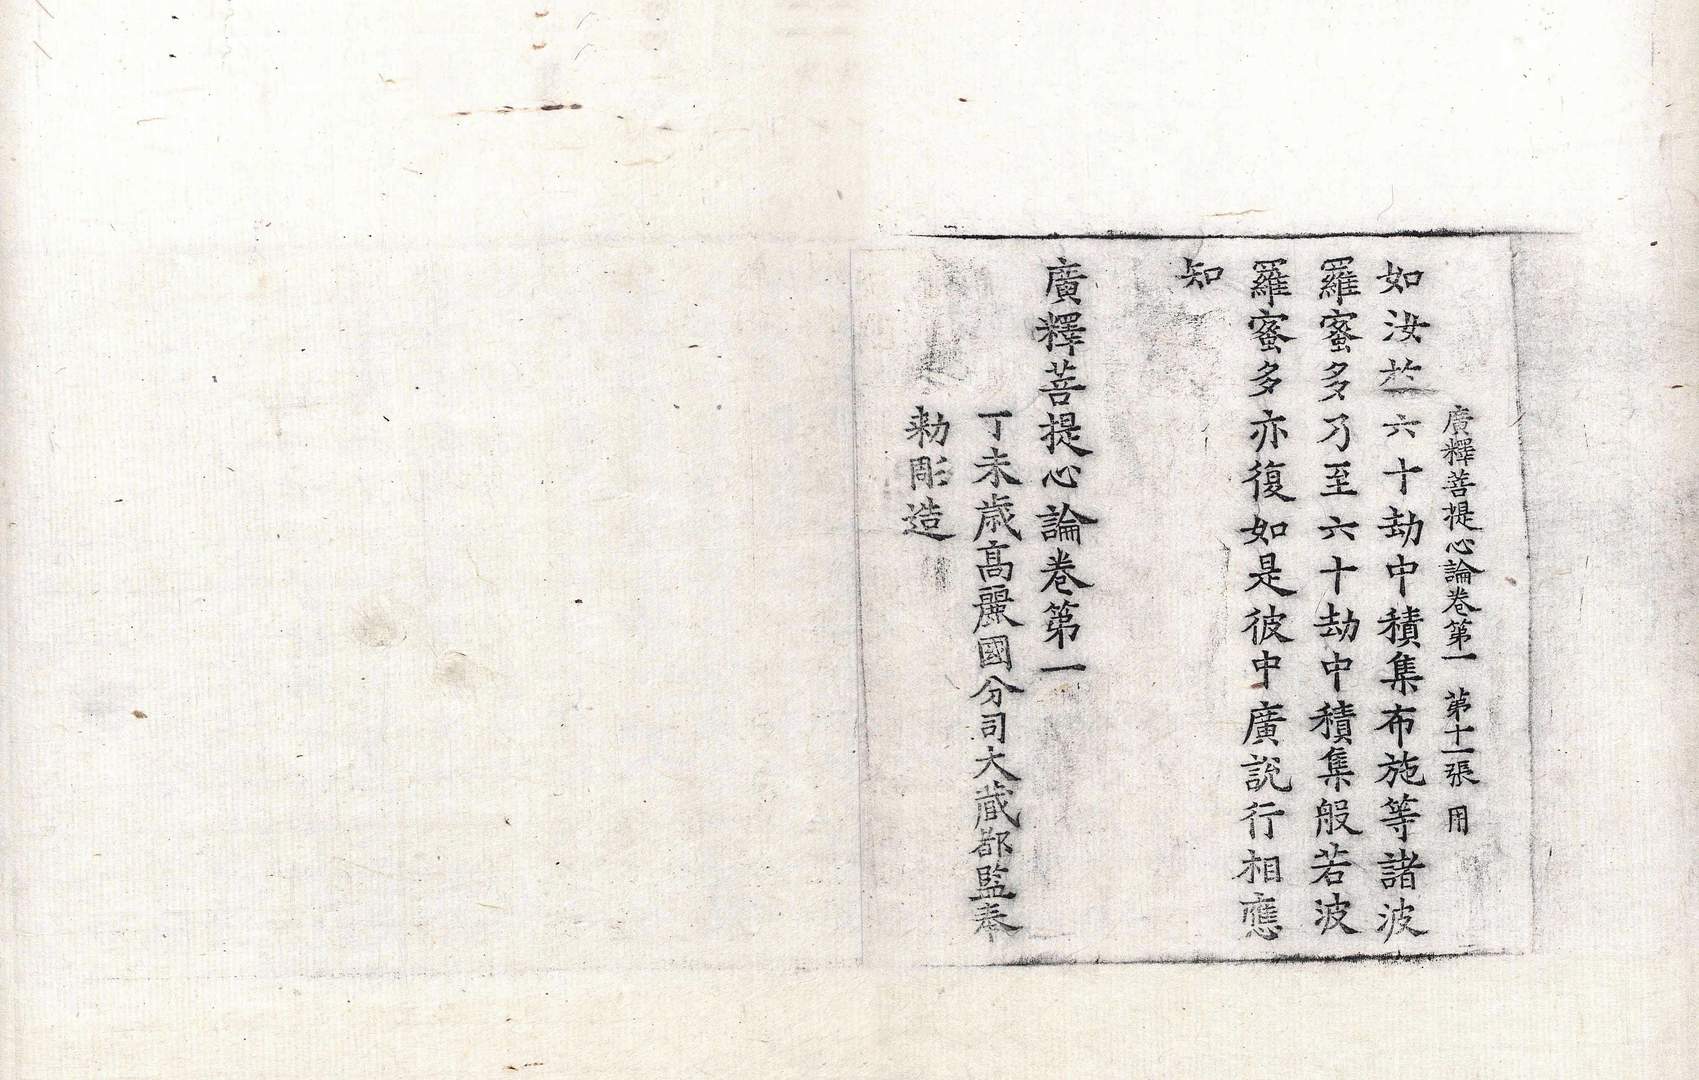 廣釋菩提心論卷第一 第十一張 用
如汝於六十劫中積集布施等諸波
羅蜜多乃至六十劫中積集般若波
羅蜜多亦復如是彼中廣說行相應
知
廣釋菩提心論卷第一
丁未歳髙麗國分司大藏都監奉
勑彫造